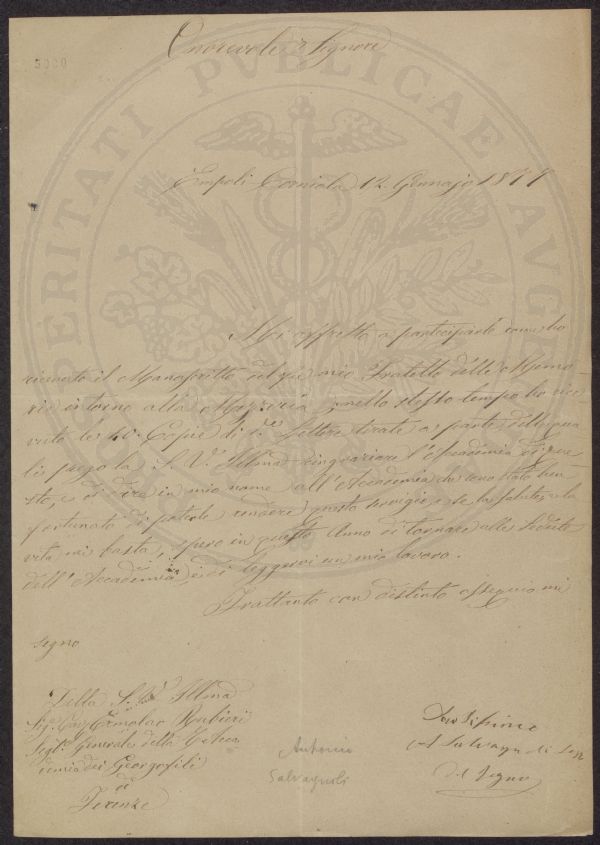 Onorevole Signore
5000
Empoli Corniola 12. Gennajo 18
Mi affretto a participarle come ho
ricevuto il Manoscritto del fu mio Fratello delle Memo-
rie intorno alla , nello stesso tempo ho rice
vuto le Copie di d.e Lettere tirate a parte, delle qua
li prego la S. V. Illma ringraziare l'Accademia di que
sto, e di dire in mio nome all'Accademia che sono stato ben
fortunato di poterle rendere questo servigio, e se la salute, e la
vita mi basta, spero in questo Anno di tornare alle Sedute
dell'Accademia, e di leggervi un mio lavoro.
Frattanto con distinto ossequio mi
segno
Della S. V. Illma
Sig. Cav. Ermolao Rubieri
Seg. Generale della R. Acca
demia dei Georgofili
di
Firenze
Antonio
Salvagnoli
PROSPERITATI PVBLICAE AVGENDAE